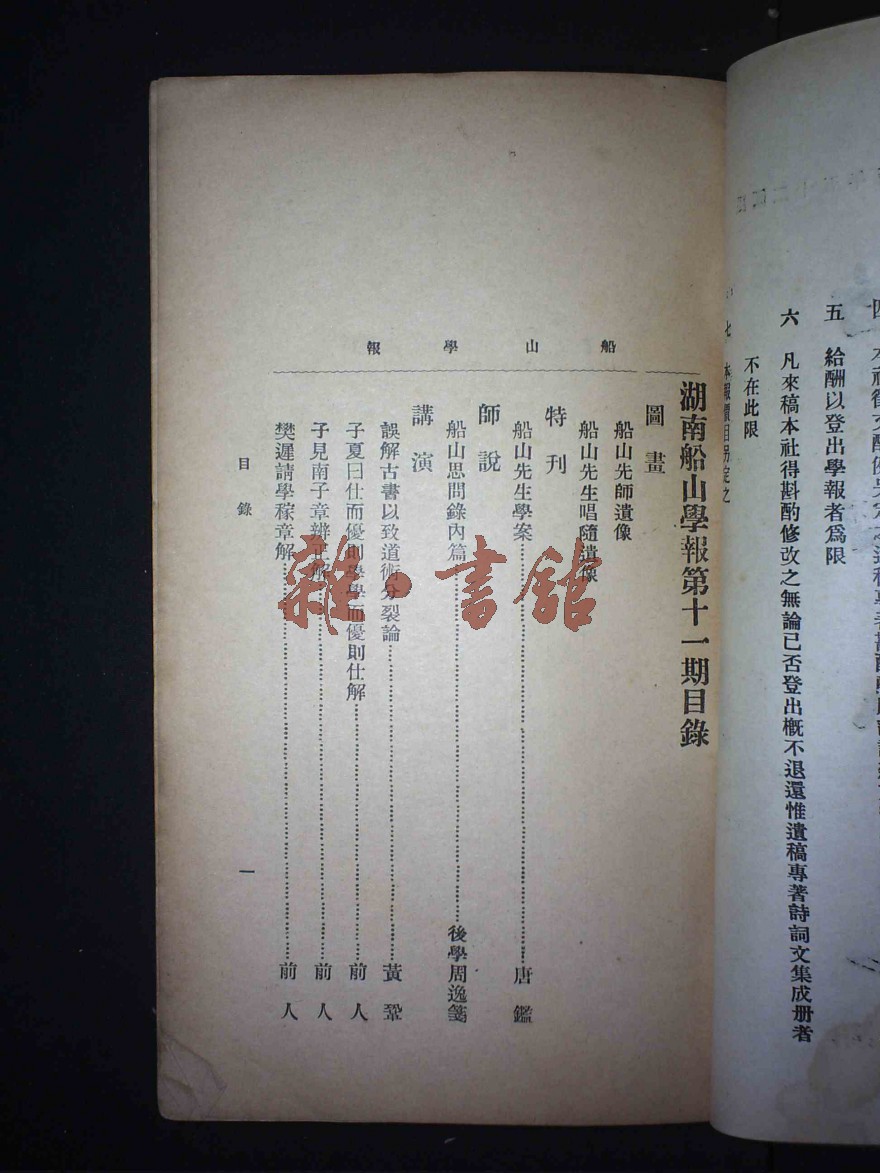 四
五　給酬以登出學報者爲限
六　凡來稿本社得斟酌修改之無論已否登出槪不退還惟遺稿專著詩詞文集成册者
不在此限
七　本報價目另定之
船山學報
湖南船山學報第十一期目錄
圖畫
船山先師遺像
船山先生唱隨遺像
特刊
船山先生學案……唐鑑
師說
船山思問錄內篇……後學周逸箋
講演
誤解古書以致道術分裂論……黃鞏
子夏曰仕而優則學學而優則仕解……前人
子見南子章辨正解……前人
樊遲請學稼章解……前人
目錄
一
雜·書館